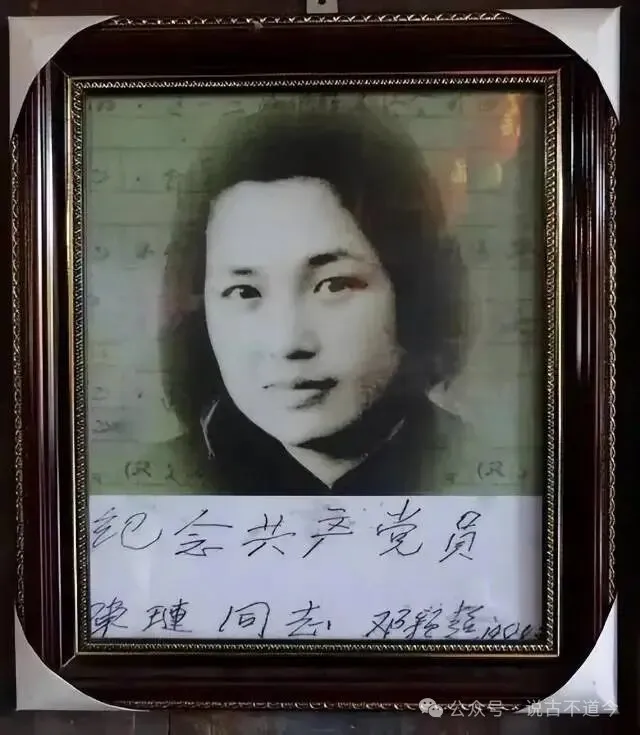 纪念共产党员
陳璉 同志 邓颖超
公众号 · 说古不道今